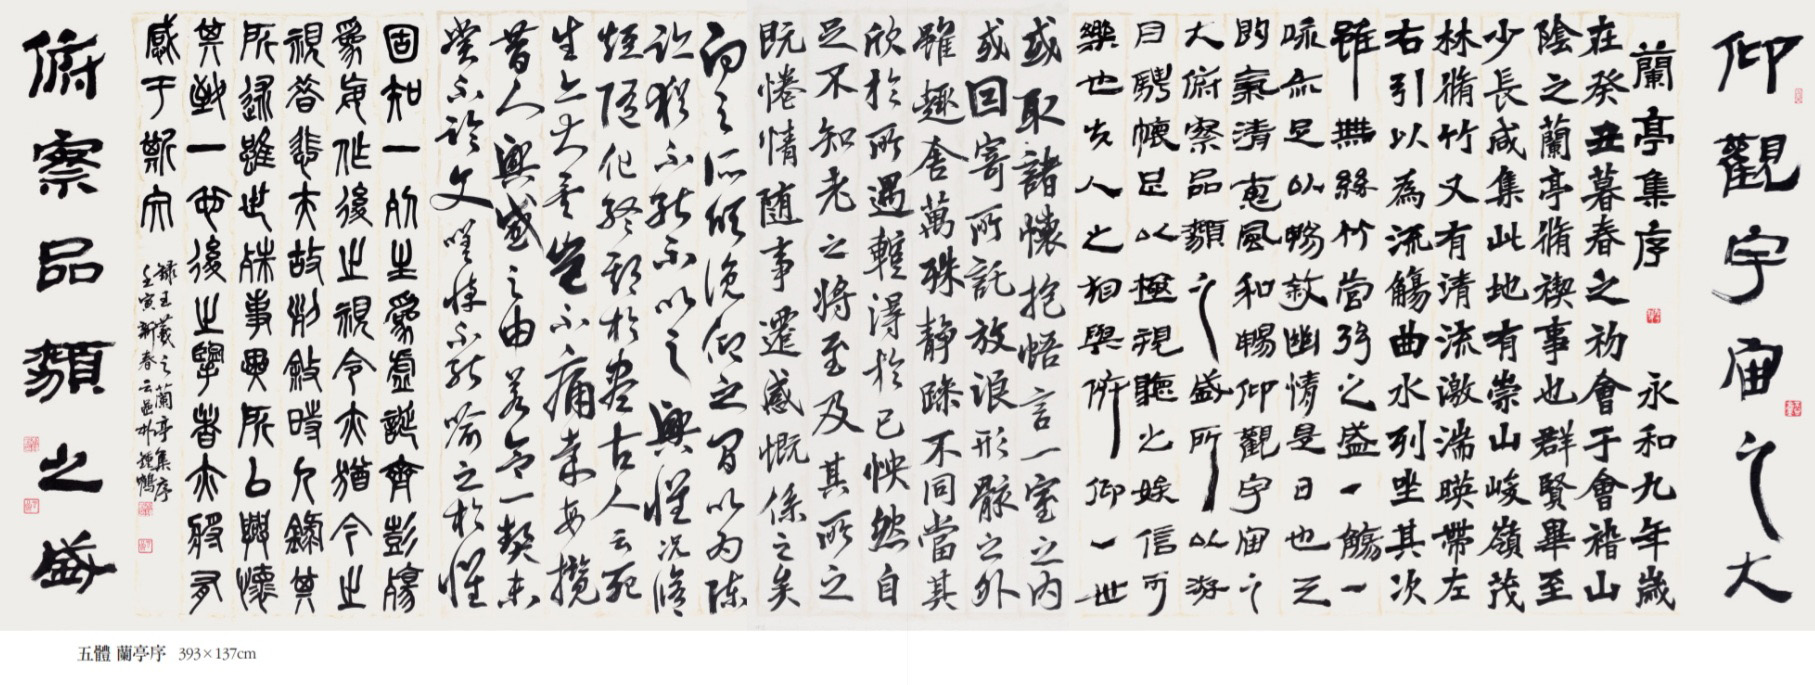 仰觀宇宙之大
蘭亭集序 永和九年歲
在癸丑暮春之初會于會稽山
陰之蘭亭脩禊事也群賢畢至
少長咸集此地有崇山峻嶺茂
林脩竹又有清流激湍暎帶左
右引以為流觴曲水列坐其次
雖無絲竹管弦之盛一觴一
咏亦足以暢敘幽情是日也天
朗氣清惠風和暢仰觀宇宙之
大俯察品類之盛所以游
目騁懷足以極視聽之娛信可
樂也夫人之相與俯仰一世
或取諸懷抱悟言一室之內
或因寄所託放浪形骸之外
雖趣舍萬殊靜躁不同當其
欣於所遇暫得於己怏然自
足不知老之將至及其所之
既惓情隨事遷感慨係之矣
向之所欣俛仰之間以為陳
迹猶不能不以之興懷況脩
短隨化終期於盡古人云死
生亦大矣豈不痛哉每攬
昔人興感之由若合一契未
嘗不臨文嗟悼不能喻之於懷
固知一死生為虛誕齊彭殤
為妄作後之視今亦猶今之
視昔悲夫故列敘時人錄其
所述雖世殊事異所以興懷
其致一也後之攬者亦將有
感于斯文
錄王羲之蘭亭集序
壬寅新春云邑朴鍾鶴
俯察品類之盛
五體 蘭亭序 393×137cm